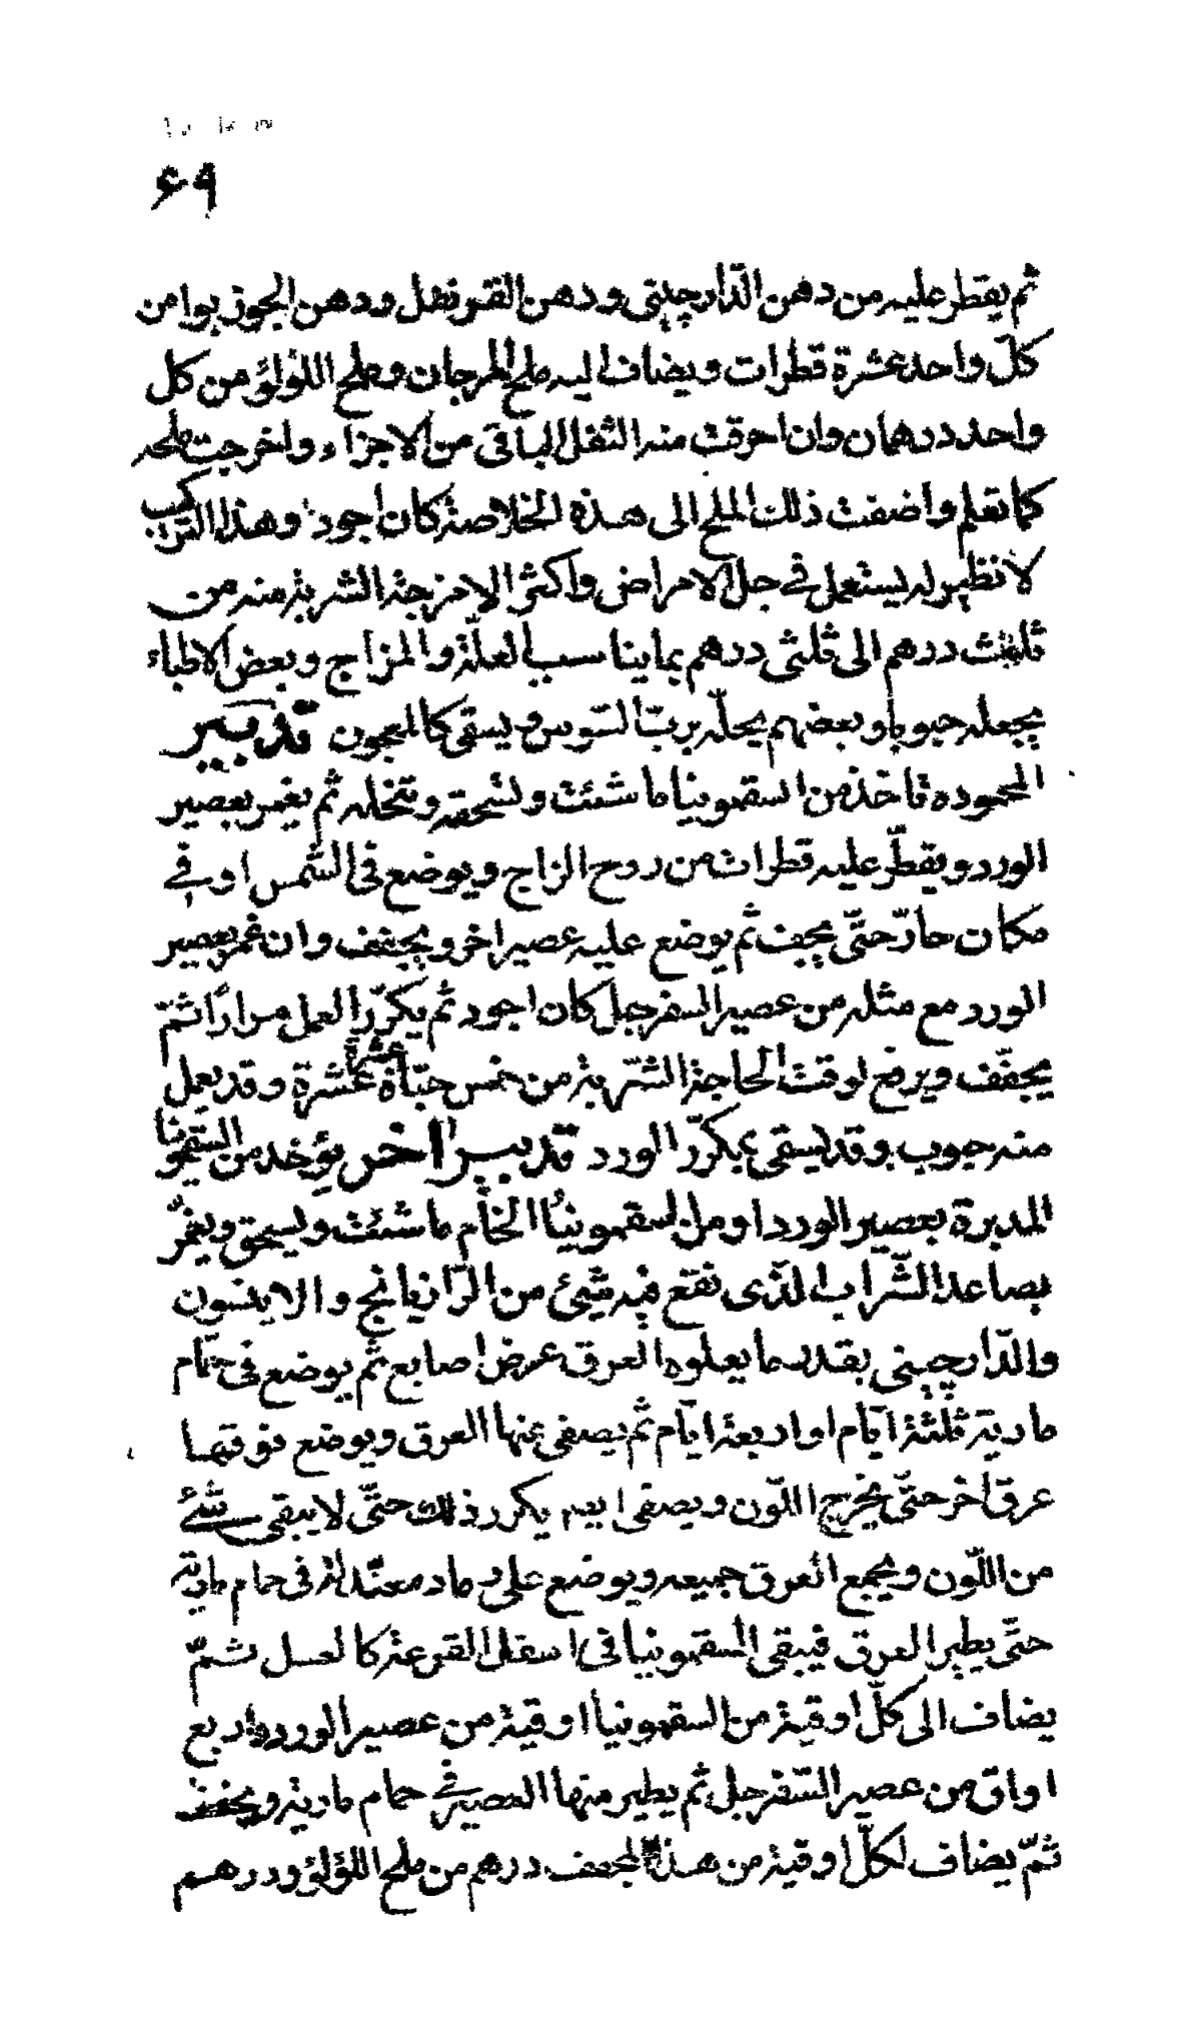 ۶۹
ثم يقطر عليه من دهن الدّارچيني ودهن القرنفل ودهن الجوز بوا من
كلّ واحد عشرة قطرات ويضاف اليه ملح المرجان وملح اللؤلؤ من كل
واحد درهمان وان احرقت منه الثفل الباقى من الاجزاء واخرجت ملحه
كما تعلم واضفت ذلك الملح الى هذه الخلاصة كان اجود وهذا التركيب
لا نظير له يستعمل في جل الامراض واكثر الامزجة الشربة منه من
ثلث درهم الى ثلثى درهم بما يناسب العلّة والمزاج وبعض الاطباء
يجعله حبوبا وبعضهم يحلّه بربّ السّوس ويسقى كالمعجون تدبير
المحموده تاخذ من السقمونيا ما شئت وتسحقه وتنخله ثم يغمر بعصير
الورد ويقطّر عليه قطرات من روح الزاج ويوضع فى الشّمس او في
مكان حارّ حتّى يجف ثم يوضع عليه عصير اخر ويجفف وان غمر بعصير
الورد مع مثله من عصير السفرجل كان اجود ثم يكرّر العمل مرارًا ثمّ
يجفّف ويرفع لوقت الحاجة الشّربة من خمس حبّات عشرة وقد يعمل
منه حبوب وقد يسقى بمكرّر الورد تدبير اخر يؤخذ من السقمونيا
المدبرة بعصير الورد او من السقمونيا الخام ما شئت ويسحق ويغمر
بصاعد الشّراب الذّى نقع فيه شيئ من الرّازيانج والاينسون
والدّارچينى بقدر ما يعلوه العرق عرض اصابع ثم يوضع فى حمّام
مارية ثلثة ايّام او اربعة ايّام ثم يصفى عنها العرق ويوضع فوقها
عرق اخر حتّى يخرج اللّون ويصفى ايضا يكرر ذلك حتّى لا يبقى شئ
من اللّون ويجمع العرق جميعه ويوضع على رماد معتدلة فى حمام مارية
حتّى يطير العرق فيبقى السقمونيا فى اسفل القرعة كالعسل ثمّ
يضاف الى كلّ اوقية من السقمونيا اوقية من عصير الورد واربع
اواق من عصير السّفرجل ثم يطير منها العصير في حمام مارية ويجفف
ثمّ يضاف لكلّ اوقية من هذا المجفف درهم من ملح اللؤلؤ ودرهم